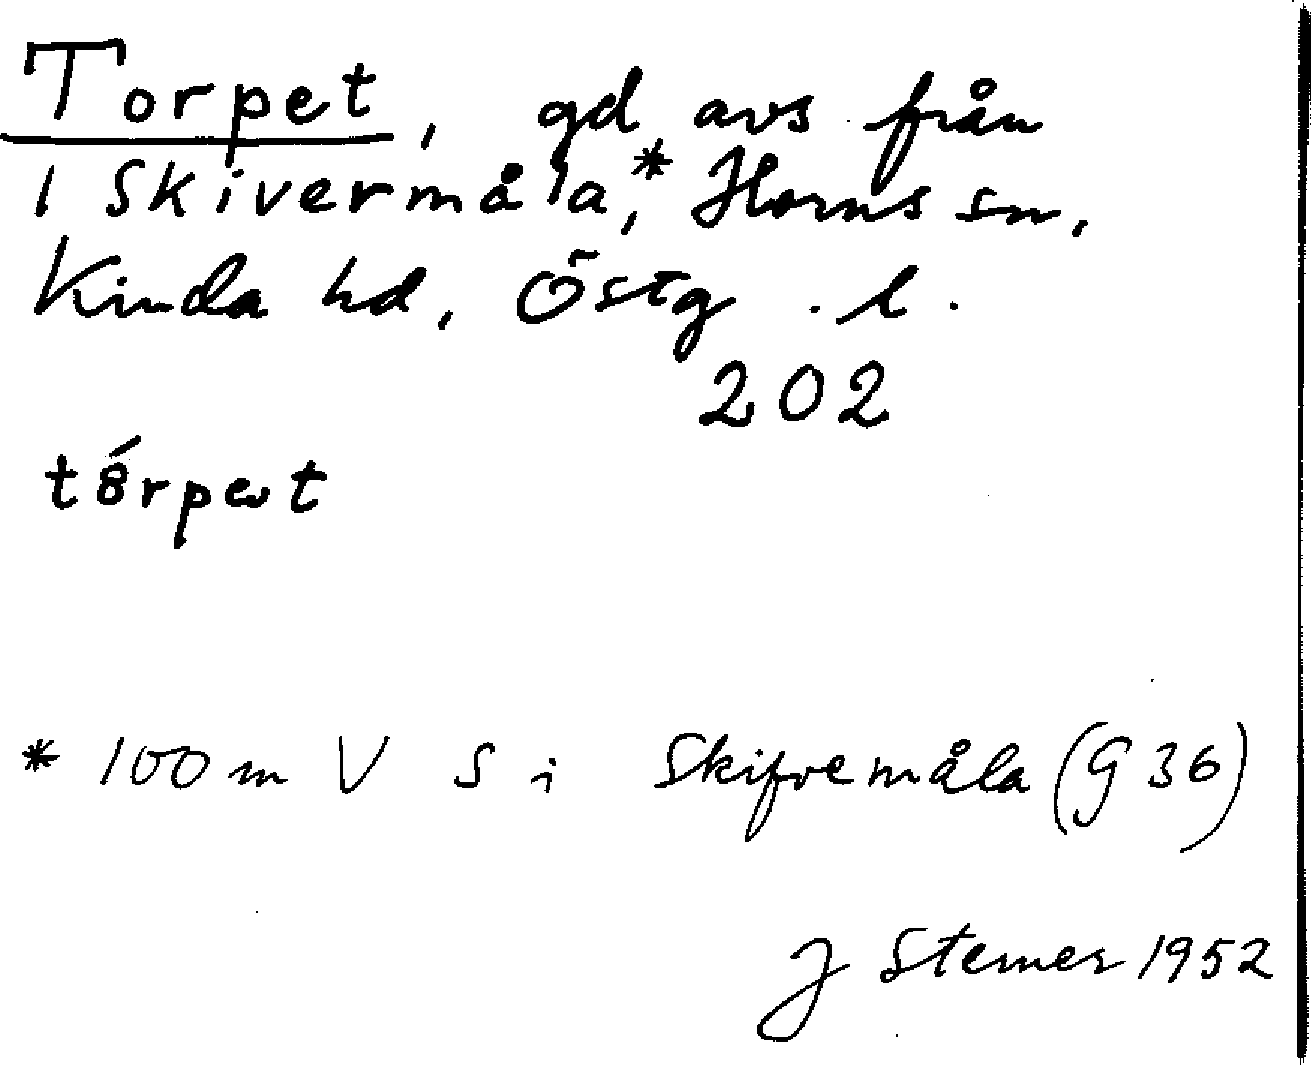 Torpet, gd avs från
1 Skivermåla,* Horns sn,
Kinda hd, Östg. l.
202
* 100 m V S i Skifvemåla (G 36)
J Stemer 1952